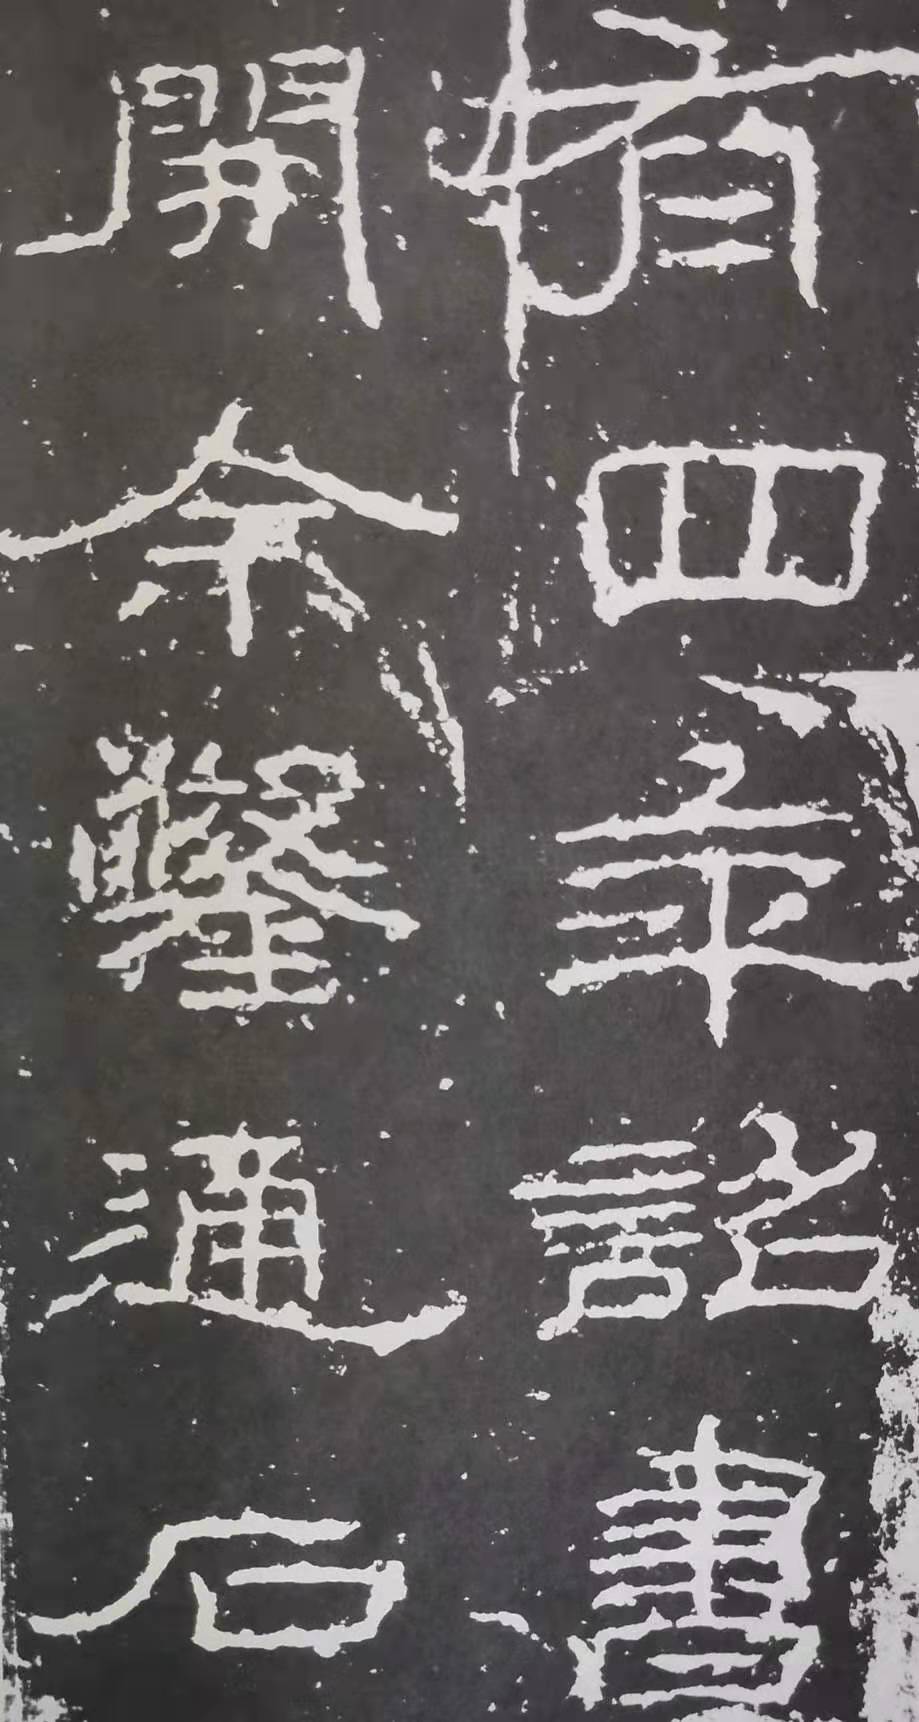 有四年詔書
開余鑿通石